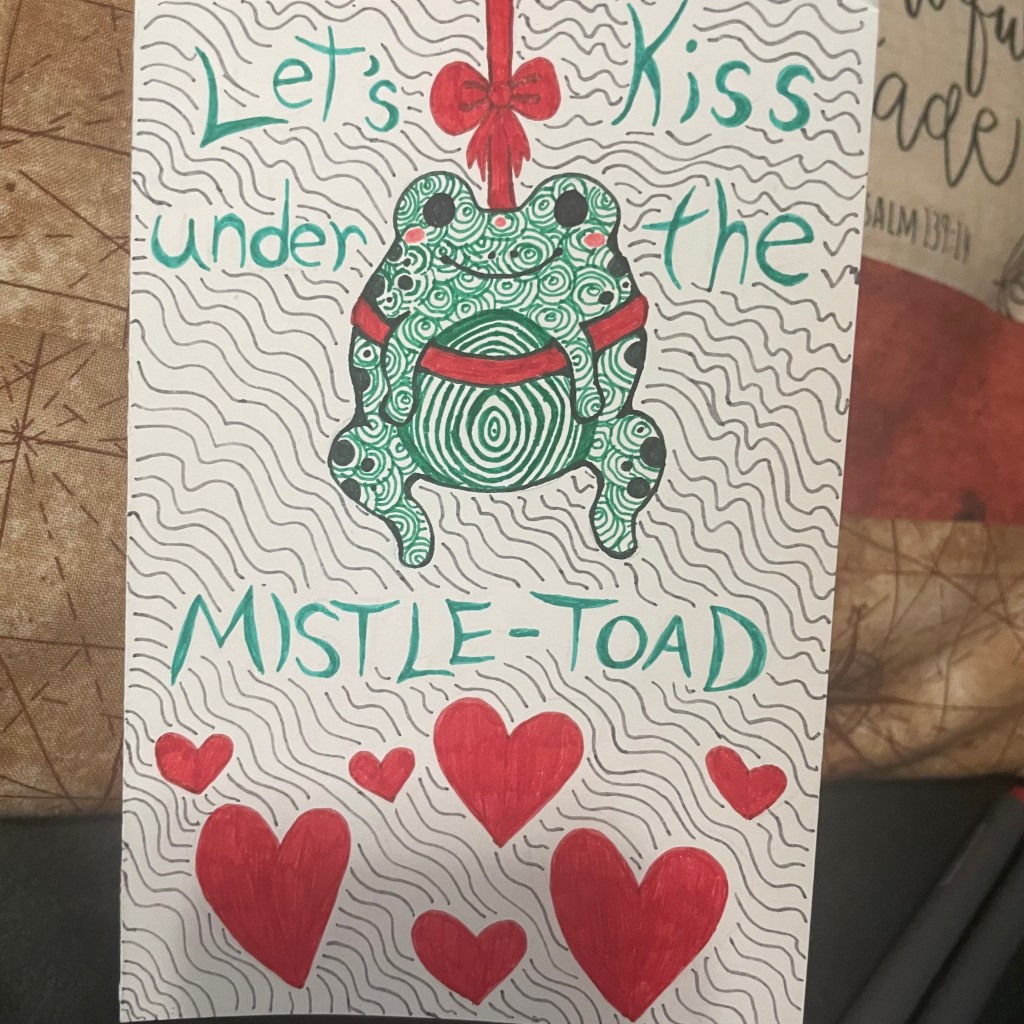 Let's Kiss
under the
MISTLE-TOAD
ade
SALM 139:14